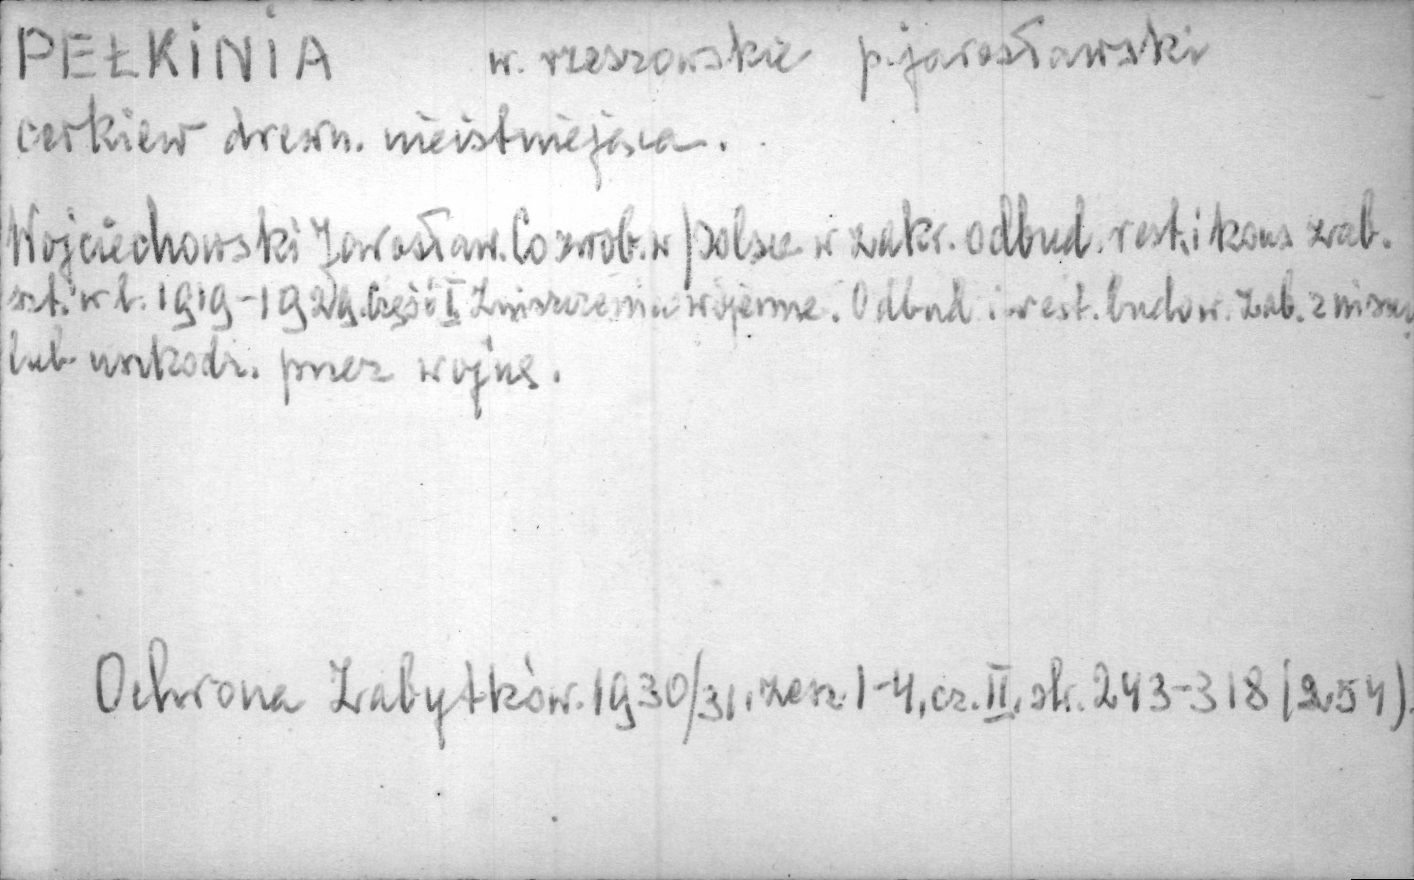 PEŁKINIA w. rzeszowskie p. jarosławski
cerkiew drewn. nieistniejąca.
Wojciechowski Jarosław. Co zrob. w Polsce w zakr. odbud. rest. i kons zab.
szt. w l. 1919-1929. Część I Zniszczenia wojenne. Odbud i rest. budow. zab. zniszcz
lub uszkodz. przez wojnę.
Ochrona Zabytków. 1930/31, zesz. 1-4, cz. II, str. 243-318 (254).